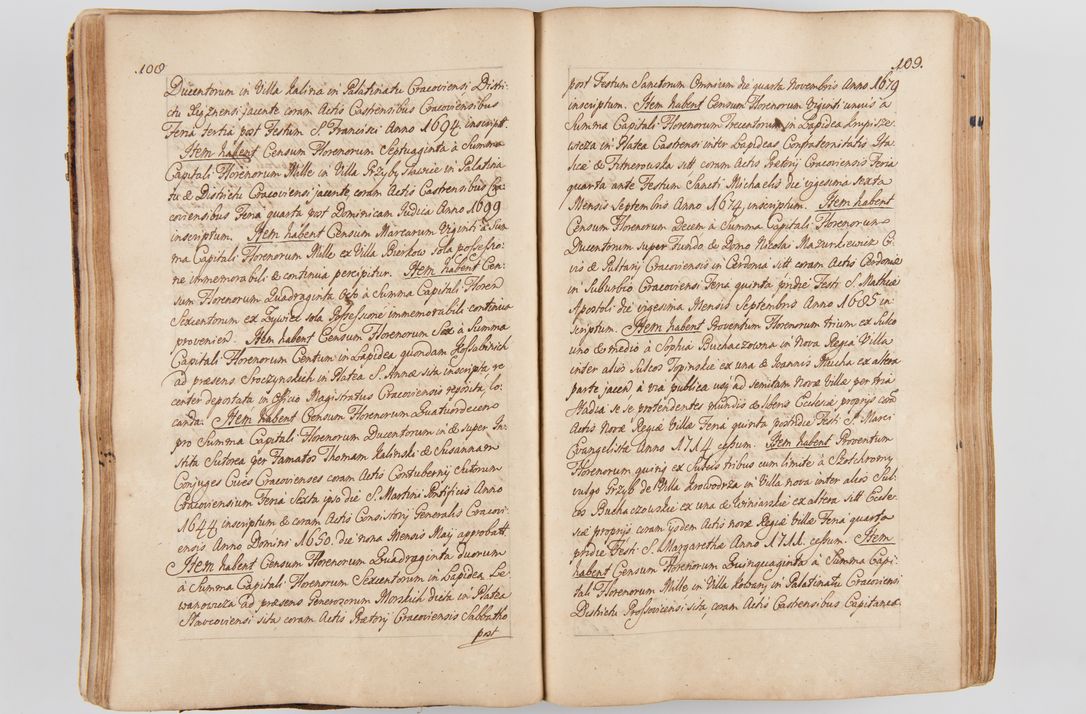 108
Ducentorum in Villa Kalina in Palatinatu Cracoviensi Distri-
ctu Xiążnensi jacente coram Actis Castrensibus Cracoviensibus
Feria tertia post Festum S. Francisci Anno 1694 inscript.
Item habent Censum Florenorum Septuaginta à Summa
Capitali Florenorum Mille in Villa Przybysławice in Palatina-
tu & Districtu Cracoviensi jacente coram Actis Castrensibus Cra-
coviensibus Feria quarta post Dominicam Judica Anno 1699
inscriptum. Item habent Censum Marcarum Viginti à Sum-
ma Capitali Florenorum Mille ex Villa Bierkow sola possessio-
ne immemorabili & continua percipitur. Item habent Cen-
sum Florenorum Quadraginta Octo à Summa Capitali Floren
Sexcentorum ex Zywiec sola possessione immemorabili continua
provenien. Item habent Censum Florenorum Sex à Summa
Capitali Florenorum Centum in Lapidea quondam
ad præsens Soczynskich in Platea S. Annæ sita inscripta re-
center deportata in Officio Magistratus Cracoviensis reposita, lo-
canda. Item habent Censum Florenorum Quatuordecem
pro Summa Capitali Florenorum Ducentorum in & super In-
stita Sutorea per Famatos Thomam Kalinski & Susannam
Conjuges Cives Cracovienses coram Actis Contubernij Sutorum
Cracoviensium Feria Sexta ipso die S. Martini Pontificis Anno
1644 inscriptum & coram Actis Consistorij Generalis Cracovi-
ensis Anno Domini 1650. die nona Mensis Maij approbatt.
Item habent Censum Florenorum Quadraginta duorum
à Summa Capitali Florenorum Sexcentorum in Lapidea Le-
wanowska ad præsens Generosorum Morskich dicta in Platea
Slavcoviensi sita coram Actis Prætorij Cracoviensis Sabbatho
post
109.
post Festum Sanctorum Omnium die quarta Novembris Anno 1679
inscriptum. Item habent Censum Florenorum Viginti unius à
Summa Capitali Florenorum Trecentorum in Lapidea
in Platea Castrensi inter Lapideas Confraternitatis Ita-
licæ & sitt coram Actis Pretorij Cracoviensis Feria
quarta ante Festum Sancti Michaelis die vigesima sexta
Mensis Septembris Anno 1674 inscriptum. Item habent
Censum Florenorum Decem à Summa Capitali Florenorum
Ducentorum super Fundo & Domo Nicolai Mazurkiewicz C-
vis & Cracoviensis in Cerdonia sitt coram Actis Cerdoniæ
in Suburbio Cracoviensi Feria quinta pridie Festi S. Mathæi
Apostoli die vigesima Mensis Septembris Anno 1685 in-
scriptum. Item habent Proventum Florenorum trium ex Sulco
uno & medio à Sophia Buchaczowna in Nova Regia Villa
inter alios Sulcos Topinskie ex una & Joannis Mucha ex altera
parte jacen à via publica usq ad semitam Novæ Villæ per tria
Stadia se se protendentes mundis & liberis Ecclesiæ proprijs coram
Actis Novæ Regiæ Villæ Feria quinta postridie Festi S. Marci
Evangelistæ Anno 1714 cessum. Item habent Proventum
Florenorum quinq ex Sulcis tribus cum limite à Szotchrowy
vulgo Przyb de Villa Krowodrza in Villa nova inter alios Sul-
cos Buchaczowskie ex una & Winiarskie ex altera sitt Eccle-
siæ proprijs coram ijsdem Actis novæ Regiæ Villæ Feria quarta
pridie Festi S. Margarethæ Anno 1711. cessum. Item
habent Censum Florenorum Quinquaginta à Summa Capi-
tali Florenorum Mille in Villa in Palatinatu Cracoviensi
Districtu Proszovicensi sita, coram Actis Castrensibus Capitanea-